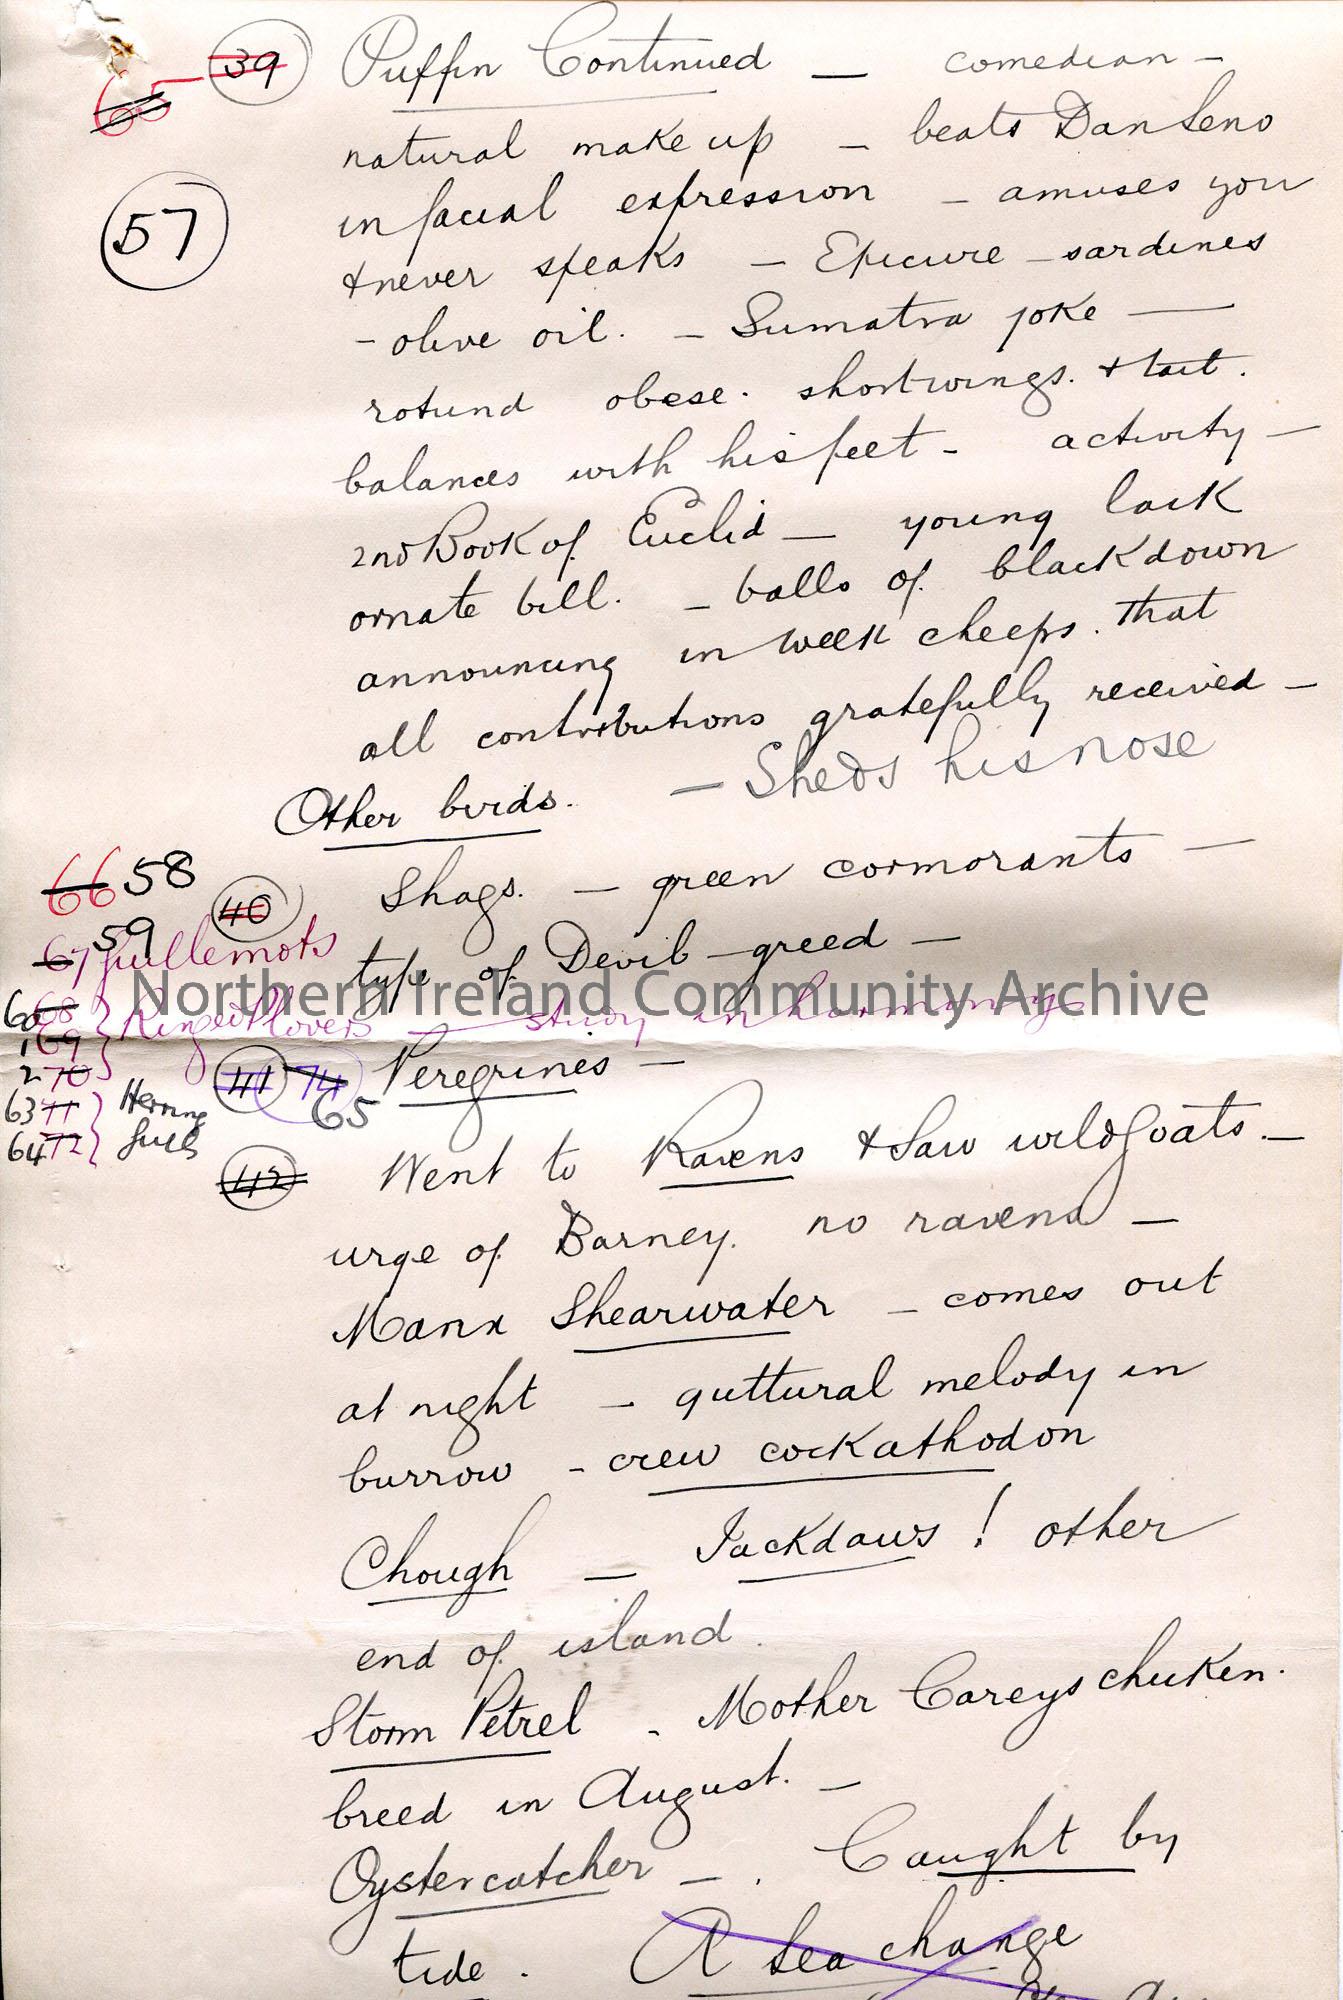 39 Puffin Continued — comedian -
65
natural make up — beats Dan Leno
57
in facial expression - amuses you
& never speaks - Epicure - sardines
- olive oil. - Sumatra joke —
rotund obese. short wings. & tail.
balances with his feet - activity -
2nd Book of Euclid — young lack
ornate bill. - balls of black down
announcing in week cheeps. that
all contributions gratefully received -
- Sheds his nose
Other birds.
66 58
40 Shags. - green cormorants -
59
67 Guillemots
type of Devil - greed -
60 68 } Ringed Plovers — study in harmony
1 69
2 70
41 74 Peregrines -
65
63 71 } Herring
64 72 } Gulls
42 Went to Ravens & Saw wild goats. -
urge of Barney. no ravens -
Manx Shearwater - comes out
at night - guttural melody in
burrow - crew cockathodon
Chough — Jackdaws! other
end of island.
Storm Petrel - Mother Careys chicken.
breed in August. -
Oystercatcher - . Caught by
tide. A Sea change
Northern Ireland Community Archive